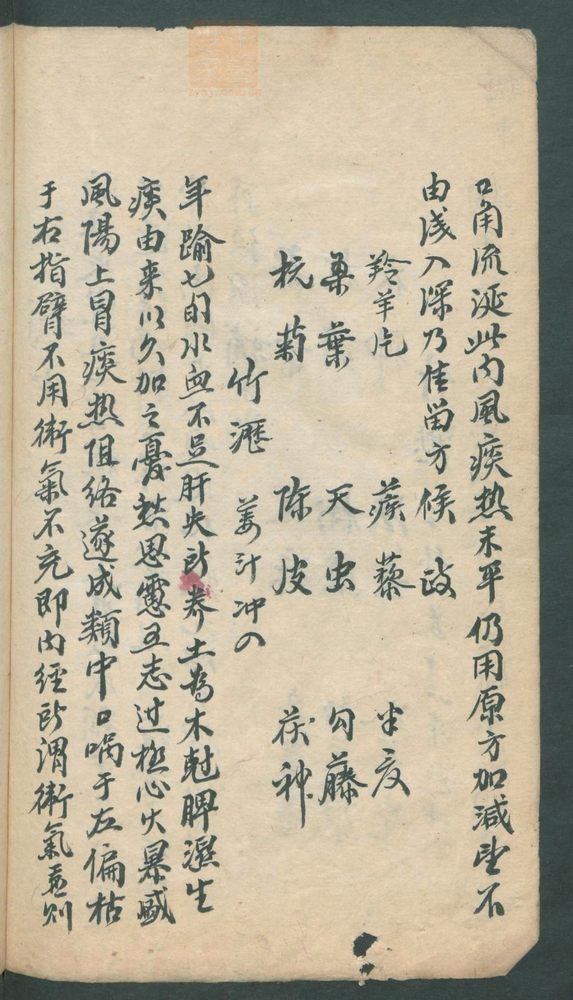 口角流涎此内風痰热未平仍用原方加減望不
由浅入深乃佳留方候政
羚羊片　蒺藜　半夏
桑葉　天虫　勾藤
杭菊　陈皮　茯神
竹瀝　姜汁冲の
年踰七旬水血不足肝失所养土為木尅脾濕生
痰由来以久加之憂愁思慮五志过極心火暴盛
風陽上冒痰热阻络遂成類中口喎于左偏枯
于右指臂不用衛氣不充即内經所谓衛氣虛则